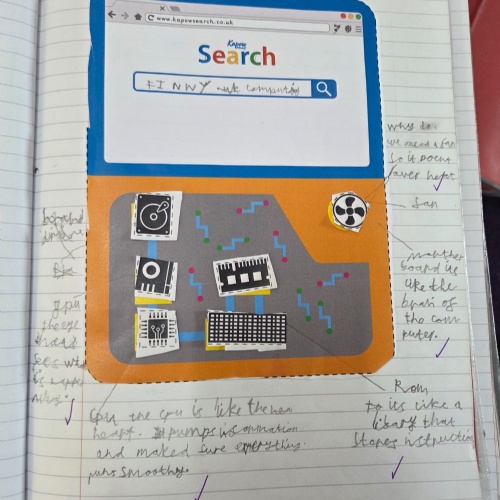 www.kapowsearch.co.uk
Kapow
Search
FINNY computing
why do
we need a fan
So it doent
over heat
fan
mother
board is
like the
brain of
the com
puter.
gpu
the eye
that
sees
is
Rom
is like a
libary that
Stores nstruction
Cpu the cpu is like the
heart. pumps is onmation
and maked sure everything
runs smoothy.